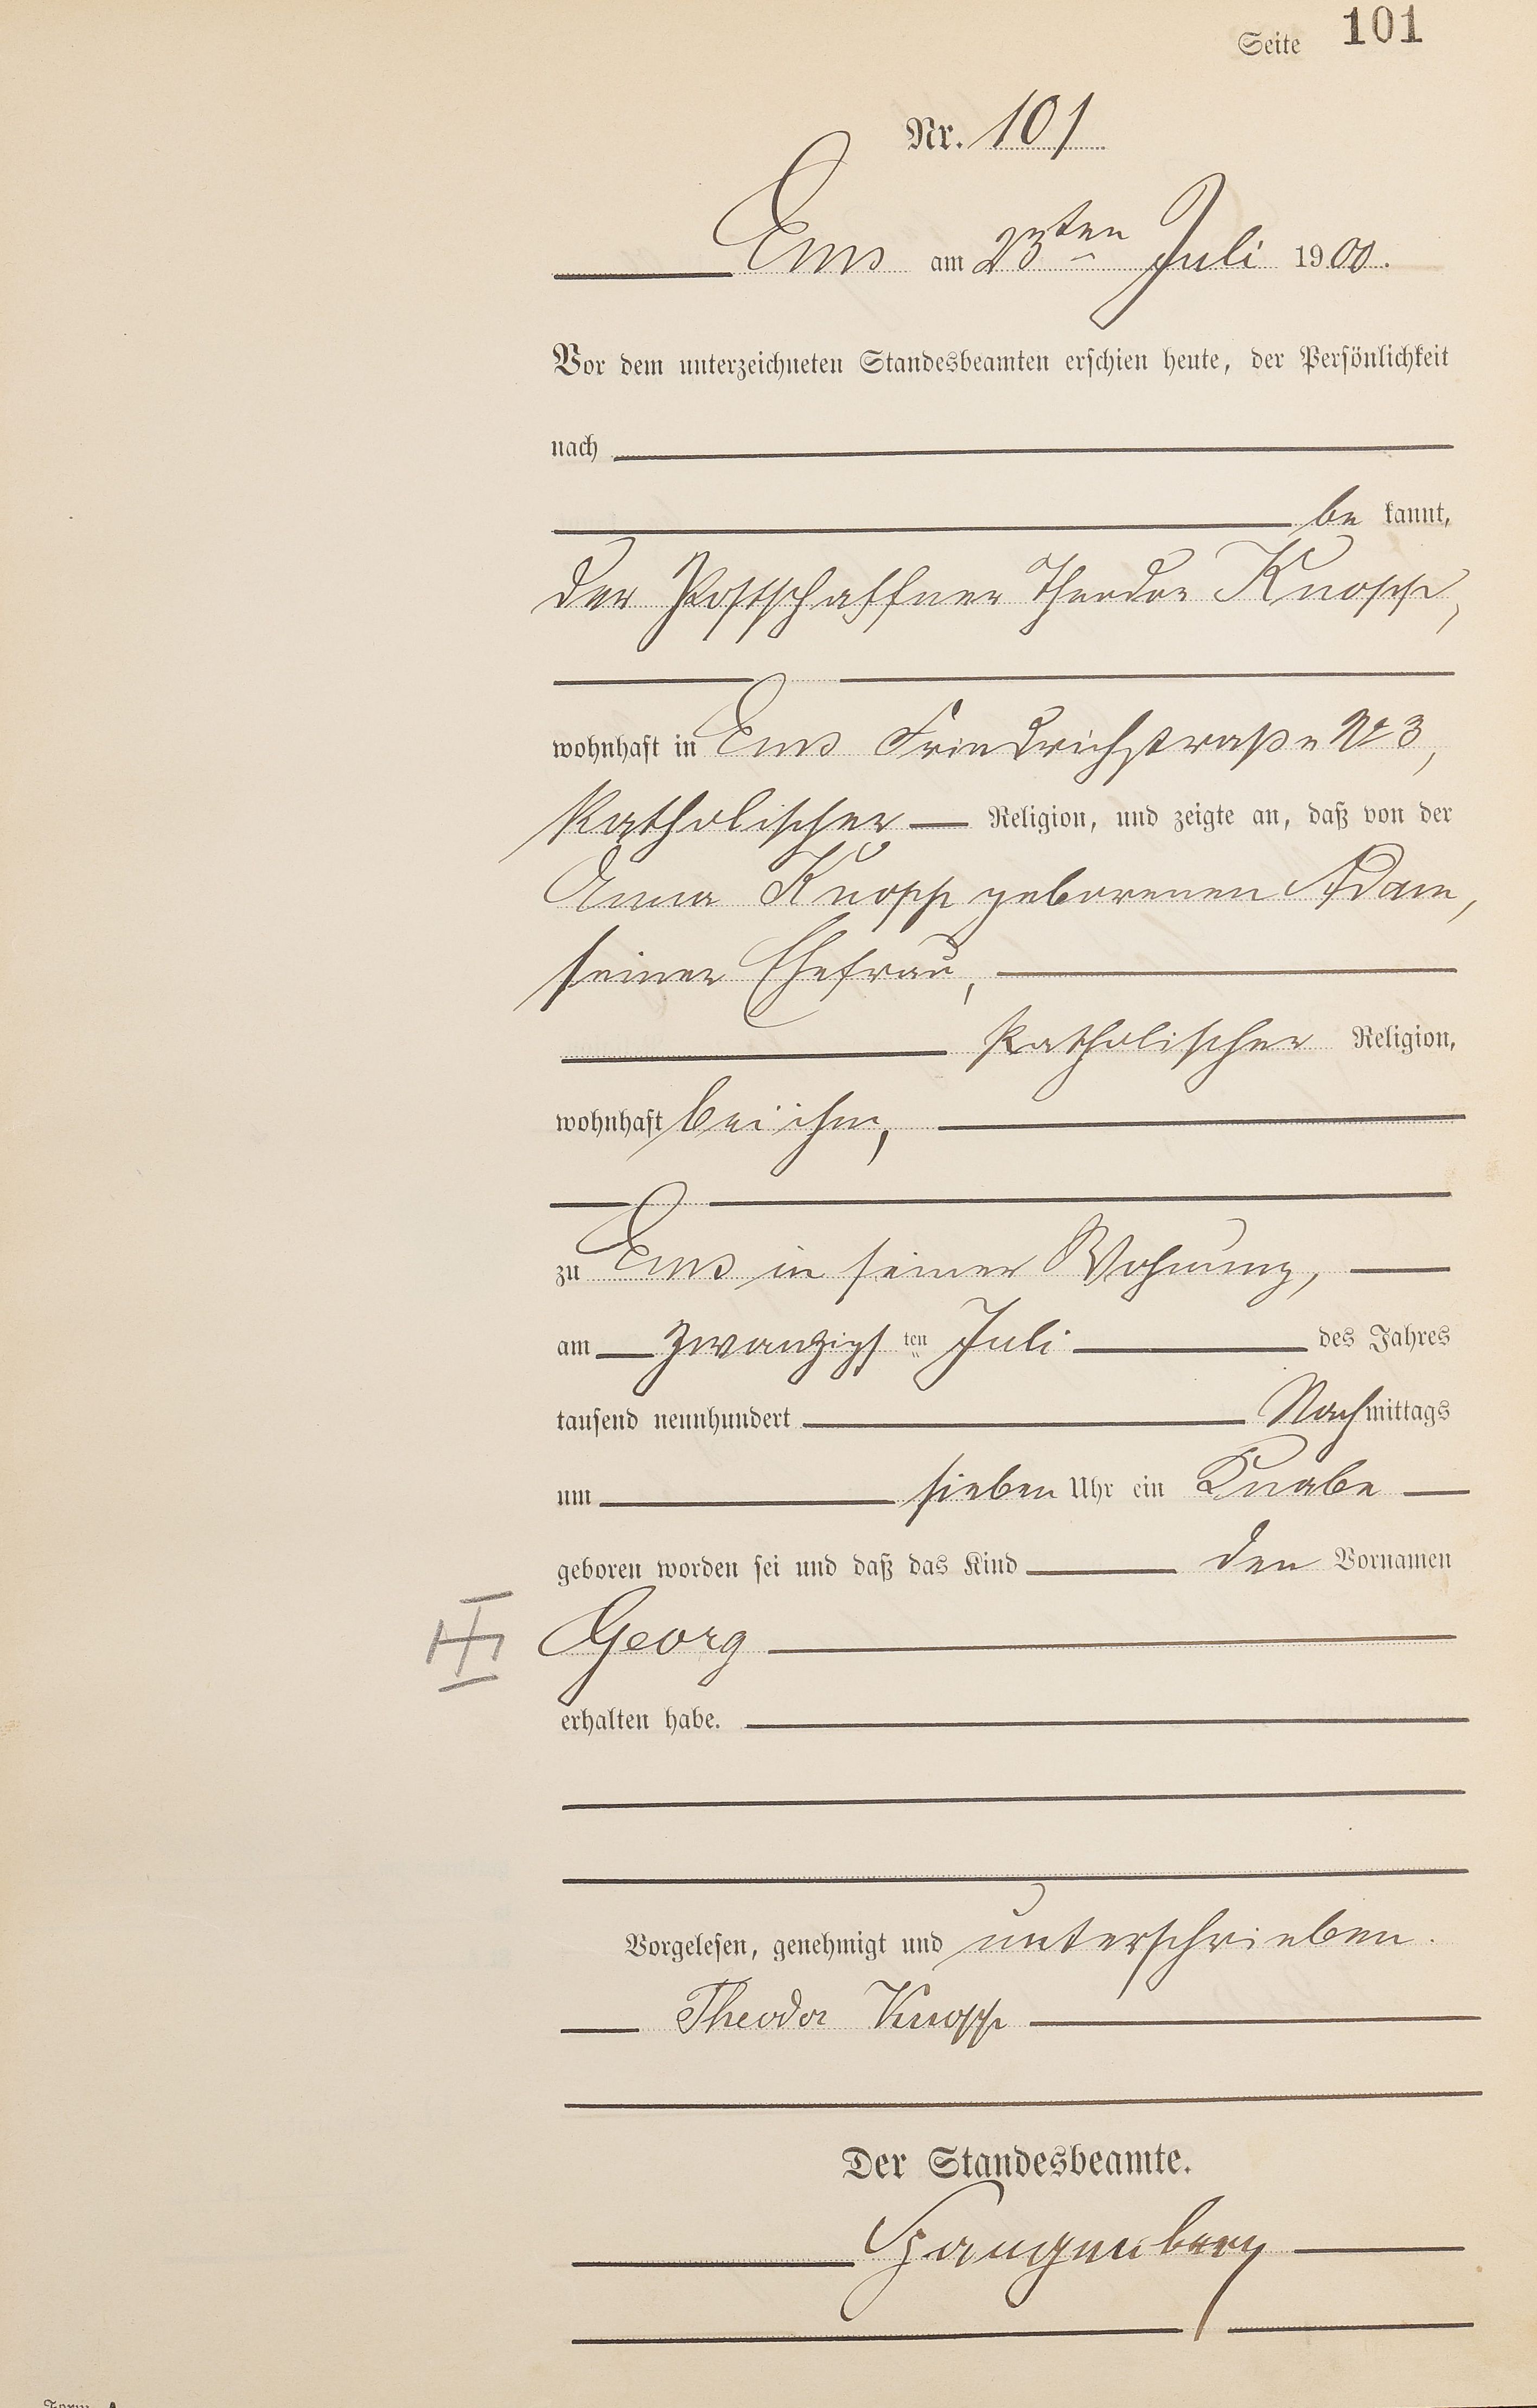 Seite 101
Nr. 101
Ems am 23ten Juli 1900.
Vor dem unterzeichneten Standesbeamten erschien heute, der Persönlichkeit
nach
be kannt,
der Postschaffner Theodor Knopp,
wohnhaft in Ems Friedrichstraße No 3,
katholischer Religion, und zeigte an, daß von der
Anna Knopp geborenen Adam,
seiner Ehefrau,
katholischer Religion,
wohnhaft bei ihm,
zu Ems in seiner Wohnung,
am zwanzigsten Juli des Jahres
tausend neunhundert Nachmittags
um sieben Uhr ein Knabe
geboren worden sei und daß das Kind den Vornamen
Georg
erhalten habe.
Vorgelesen, genehmigt und unterschrieben.
Theodor Knopp
Der Standesbeamte.
Spangenberg